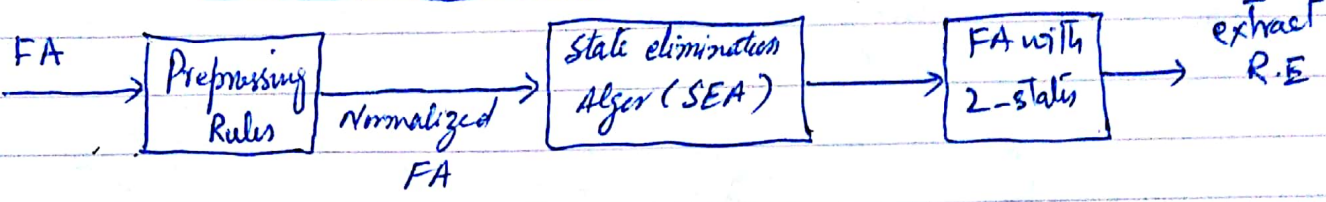 FA
Preprossing
Rules
Normalized
FA
State elimination
Alger (SEA)
FA with
2-states
extract
R.E